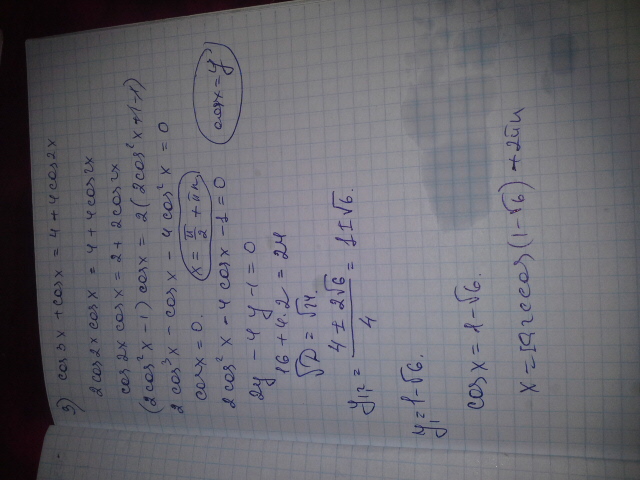 3) cos 3x + cosx = 4 + 4cos2x
2cos2x cosx = 4 + 4cos2x
cos2x cosx = 2 + 2cos2x
(2cos²x - 1) cosx = 2(2cos²x + 1 - 1)
2cos³x - cosx - 4cos²x = 0
cosx = 0. x = π/2 + πn cosx = y
2cos²x - 4cosx - 1 = 0
2y - 4y - 1 = 0
16 + 4·2 = 24
√D = √24
y₁,₂ = (4 ± 2√6)/4 = 1 ± √6.
y₁ = 1 - √6.
cosx = 1 - √6.
x = arccos(1 - √6) + 2πn